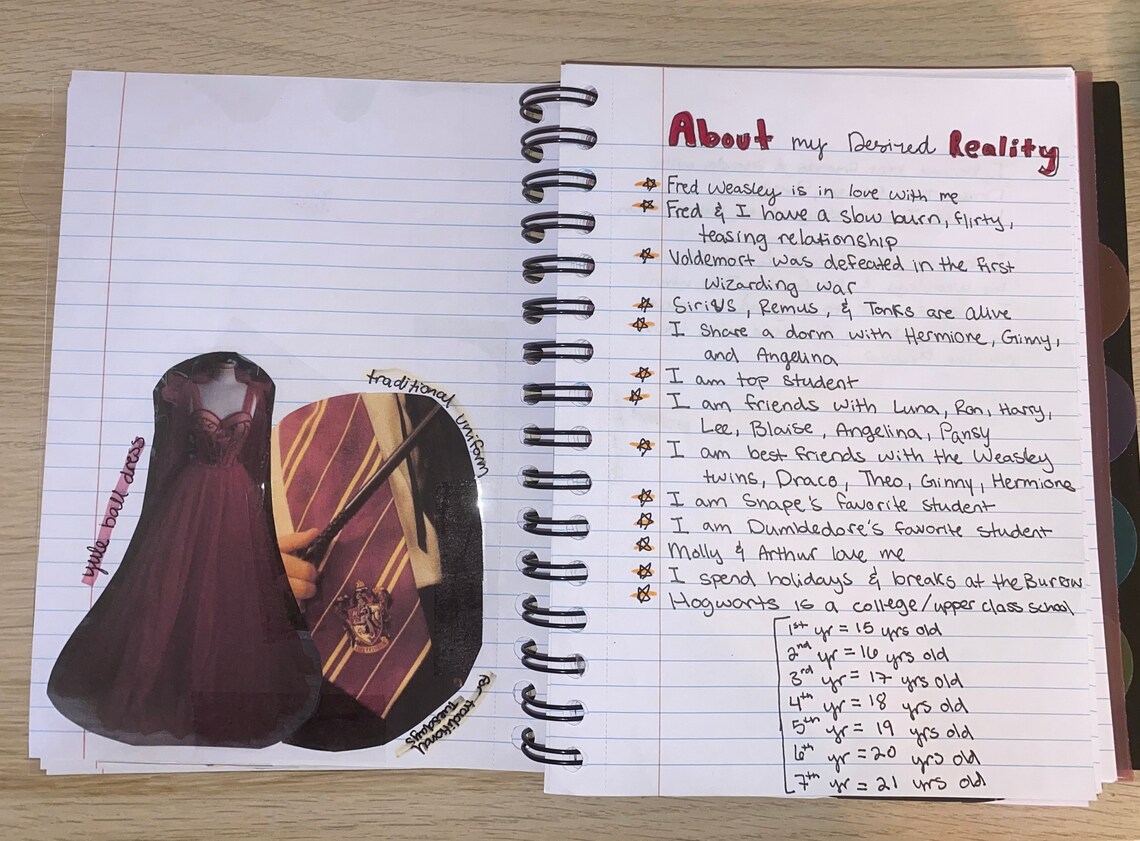 yule ball dress
traditional uniform
for traditional
Tuesdays
About my Desired Reality
Fred Weasley is in love with me
Fred & I have a slow burn, flirty,
teasing relationship
Voldemort was defeated in the first
wizarding war
Sirius, Remus, & Tonks are alive
I share a dorm with Hermione, Ginny,
and Angelina
I am top student
I am friends with Luna, Ron, Harry,
Lee, Blaise, Angelina, Pansy
I am best friends with the Weasley
twins, Draco, Theo, Ginny, Hermione
I am Snape's favorite student
I am Dumbledore's favorite student
Molly & Arthur love me
I spend holidays & breaks at the Burrow
Hogwarts is a college/upper class school
1st yr = 15 yrs old
2nd yr = 16 yrs old
3rd yr = 17 yrs old
4th yr = 18 yrs old
5th yr = 19 yrs old
6th yr = 20 yrs old
7th yr = 21 yrs old